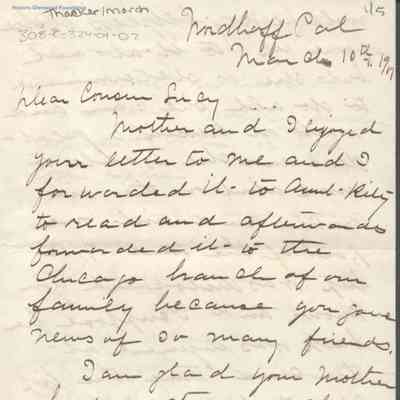 Historic Glenwood Foundation
Thacker/March
1/5
308-E-324-01-02
Nordhoff Cal
March 10th, 19
Dear Cousin Lucy
Mother and I enjoyed
your letter to me and I
forwarded it to Aunt Kitty
to read and afterwards
forwarded it to the
Chicago branch of our
family because you gave
news of so many friends.
I am glad your Mother